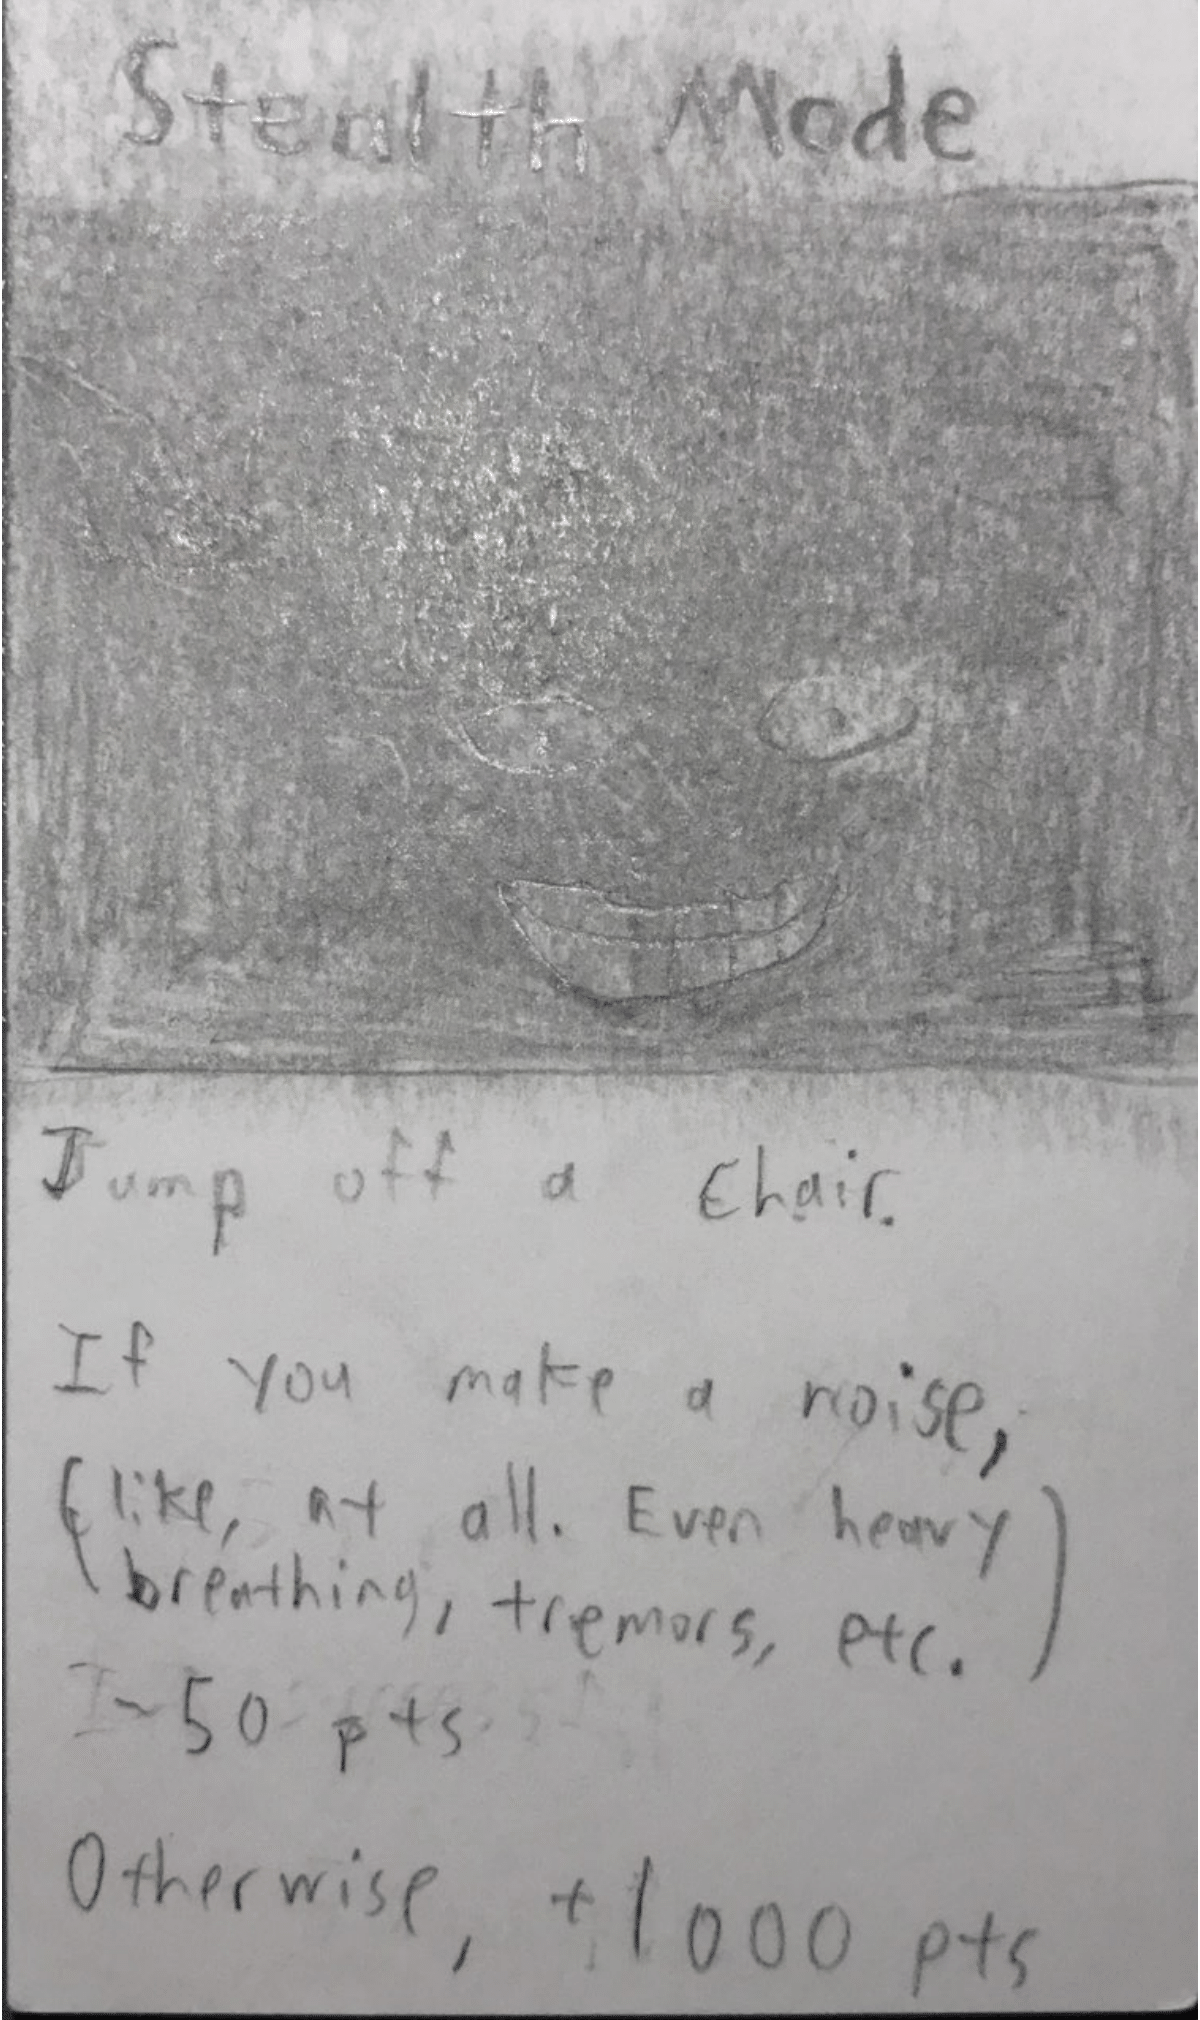 Stealth Mode
Jump off a Chair.
If you make a noise,
(like, at all. Even heavy
breathing, tremors, etc.)
-50 pts
Otherwise, +1000 pts